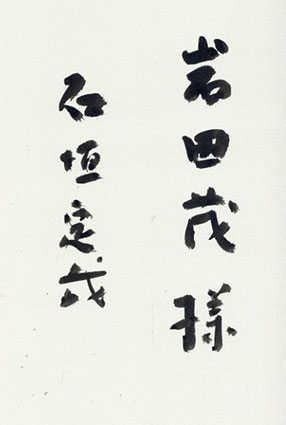 岩田茂様
石垣定哉